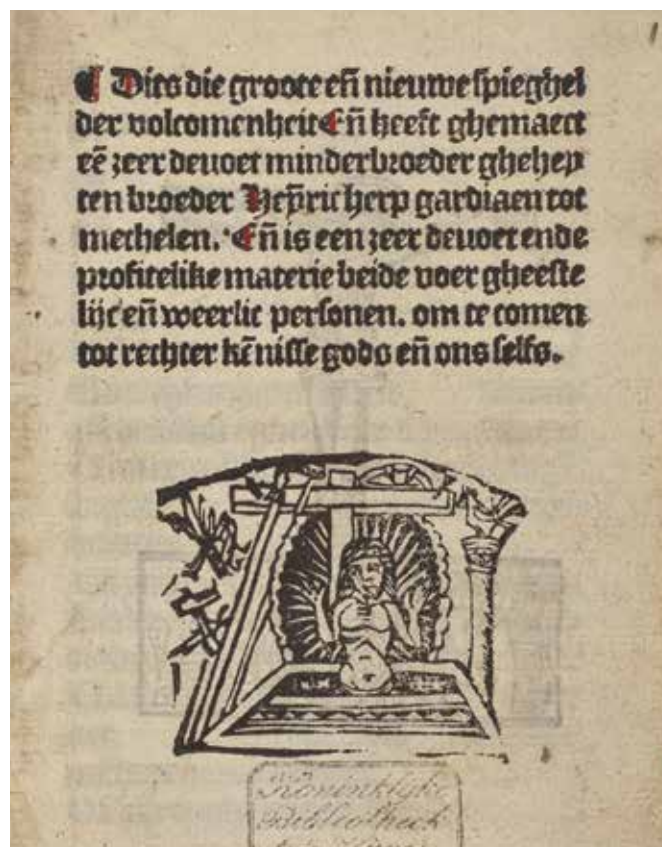 ¶ Dits die groote eñ nieuwe spieghel
der volcomenheit Eñ heeft ghemaect
eē zeer deuoet minderbroeder ghehey
ten broeder Heȳric herp gardiaen tot
mechelen. Eñ is een zeer deuoet ende
profitelike materie beide voer gheeste
lijc eñ weerlic personen. om te comen
tot rechter kēnisse gods eñ ons selfs.
Koninklijke
Bibliotheek